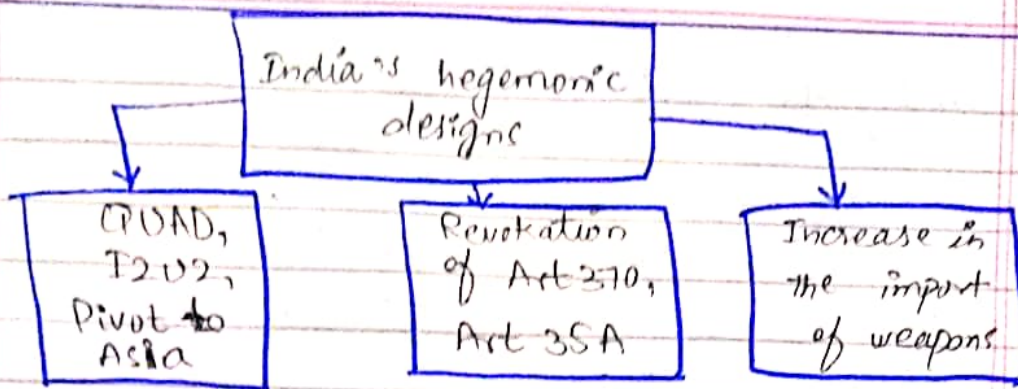 India's hegemonic
designs
QUAD,
I2U2,
Pivot to
Asia
Revokation
of Art 370,
Art 35A
Increase in
the import
of weapons